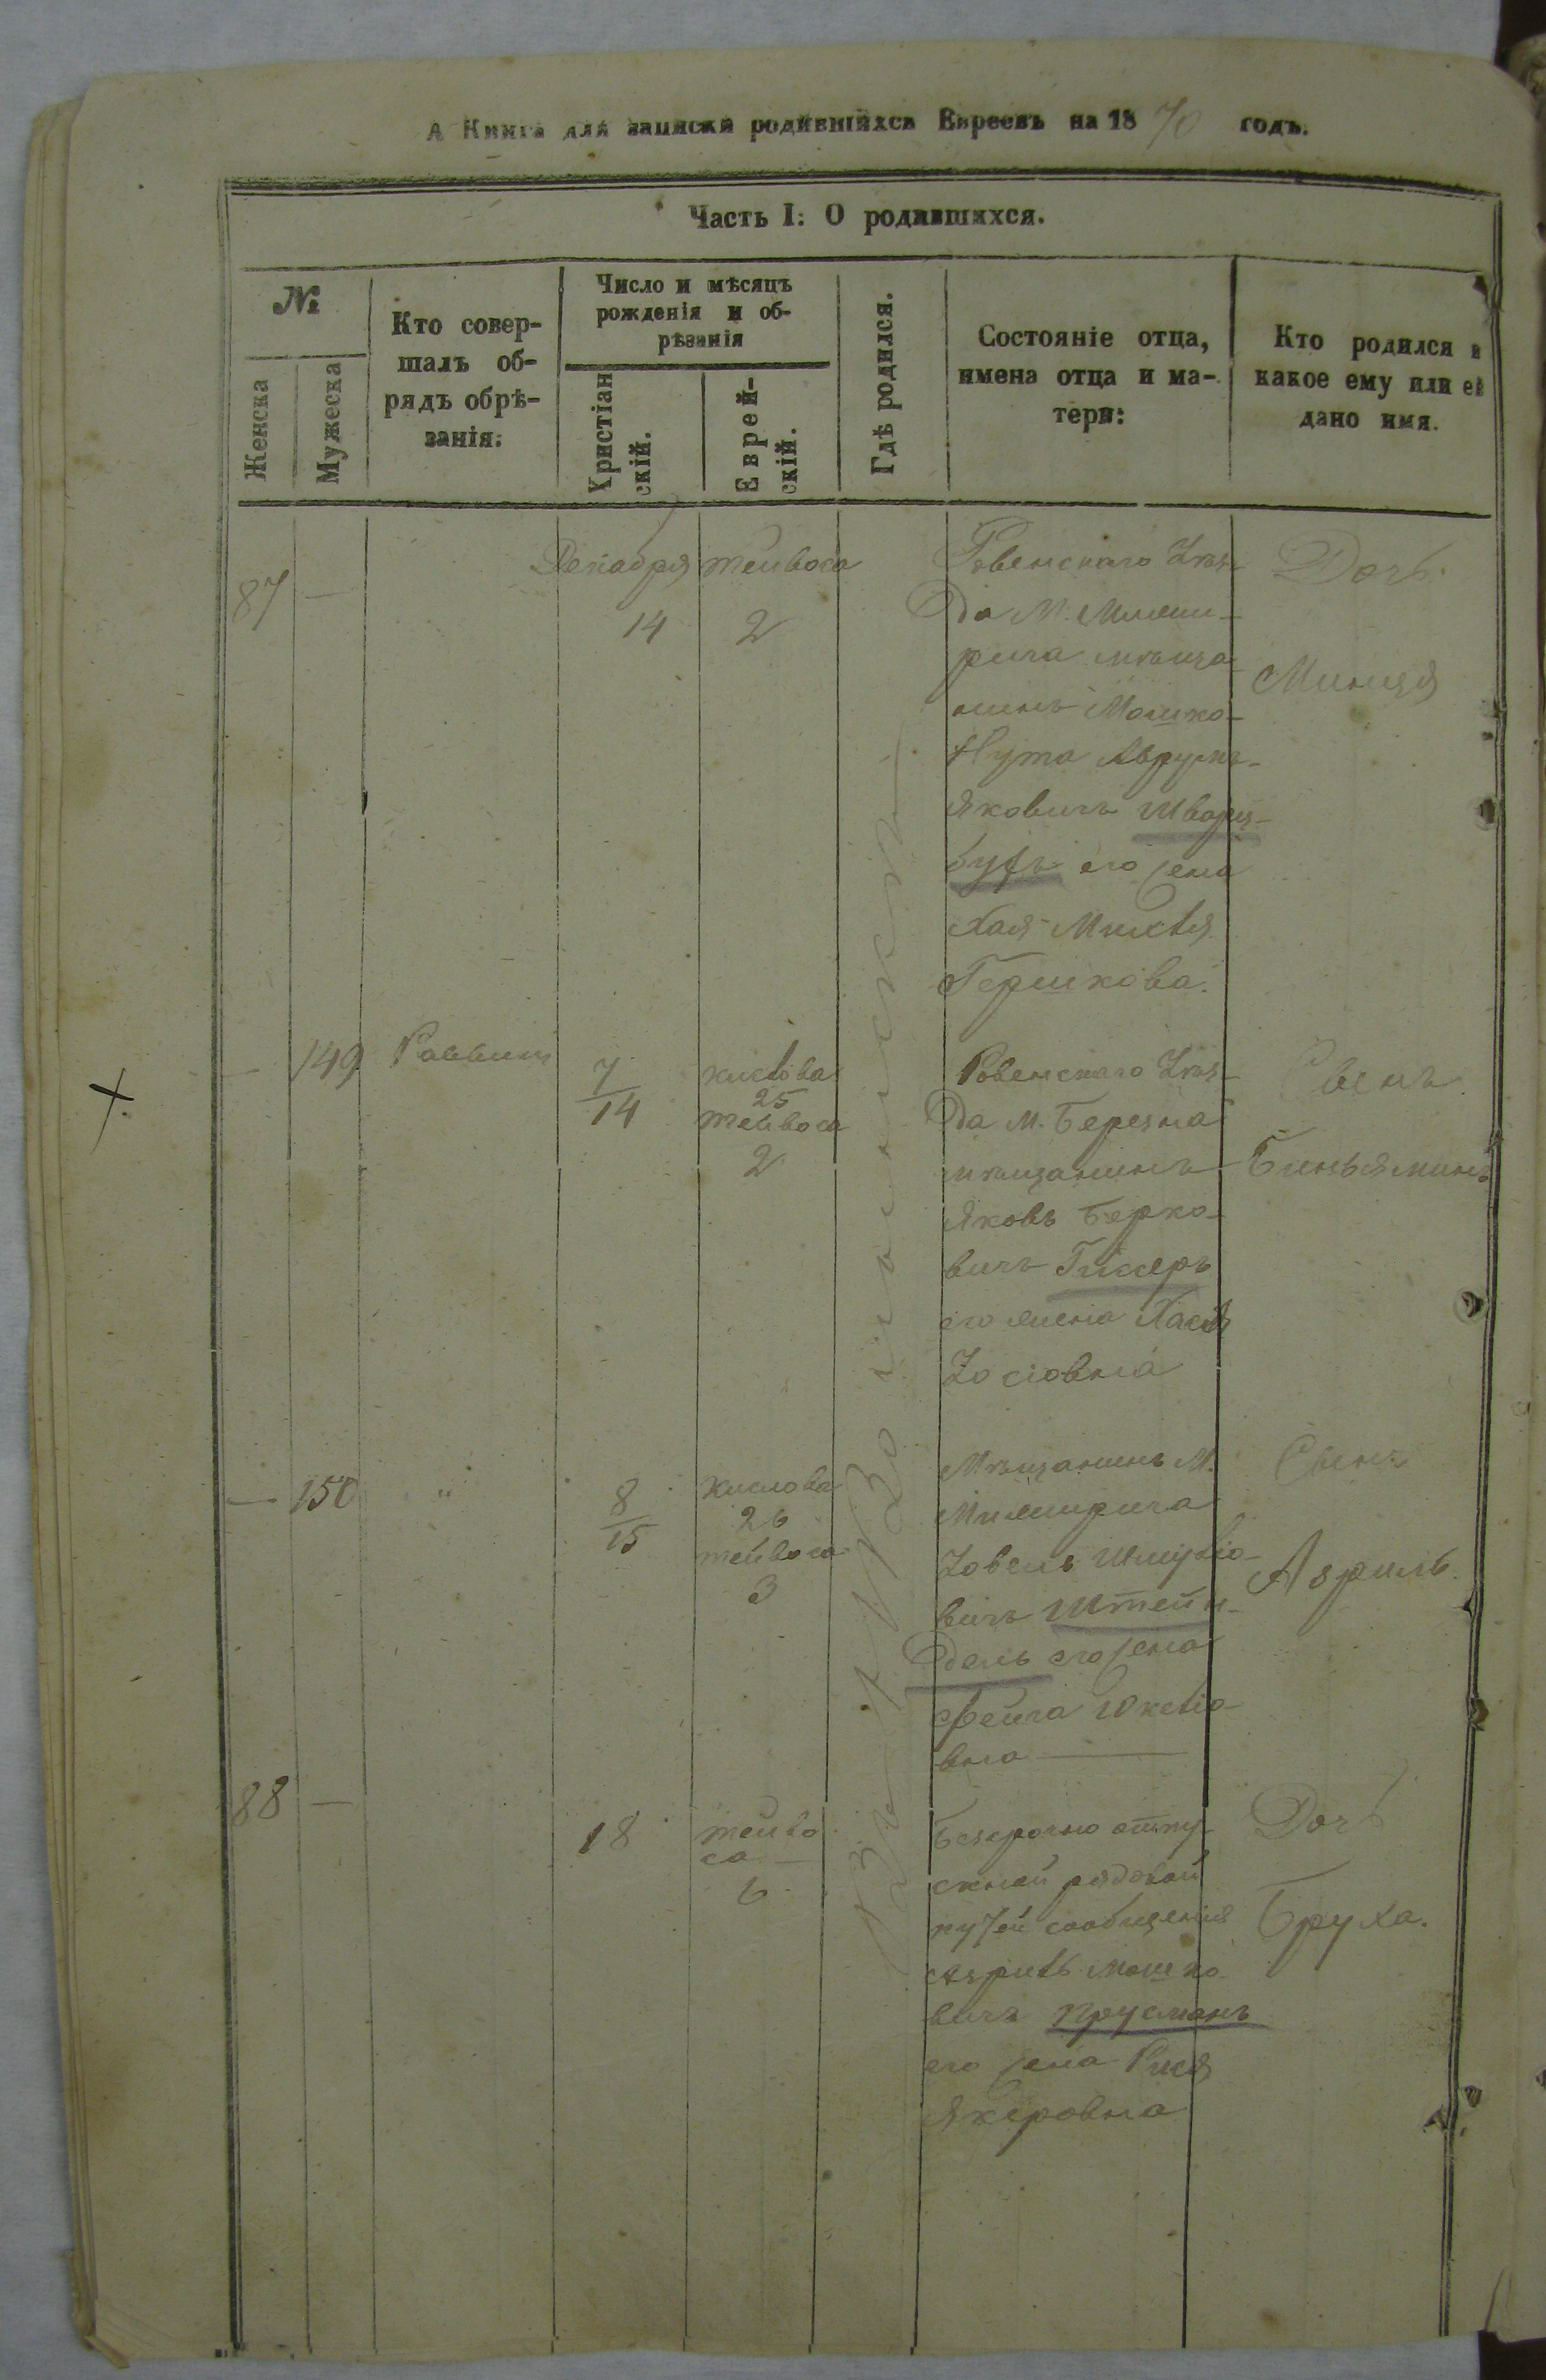 А Книга для записки родившихся Евреевъ на 1870 годъ.
Часть I: О родившихся.
№
Женска
Мужеска
Кто совер-
шалъ об-
рядъ обрѣ-
занія:
Число и мѣсяцъ
рожденія и об-
рѣзанія
Христіан
скій.
Еврей-
скій.
Гдѣ родился.
Состояніе отца,
имена отца и ма-
тери:
Кто родился и
какое ему или ей
дано имя.
87 —
Декабря
14
тейвоса
2
Ровенскаго Уѣз-
да М.
рича мѣща-
нинъ Мошко-
Нута Аврумъ-
Яковичъ Шварц-
буръ его жена
Хая
Гершкова.
Дочь.
Минця
— 149
Раввинъ
7
14
кислова
25
тейвоса
2
Ровенскаго Уѣз-
да М. Березна
мѣщанинъ
Яковъ Берко-
вичъ Гиклеръ
его жена Хася
Іосіовна
Сынъ
Биньяминъ
— 150
"
8
15
кислова
26
тейвоса
3
Мѣщанинъ М.
Межирича
Іовель Шмуліо-
вичъ Штейн-
дель его жена
Фейга
вна —
Сынъ
Азриль.
88 —
18
тейво
са —
6
Безсрочно отпу-
скной рядовой
путей сообщенія
Азриль Мошко-
вичъ Прусманъ
его жена Рися
Якеровна
Дочь
Бруха.